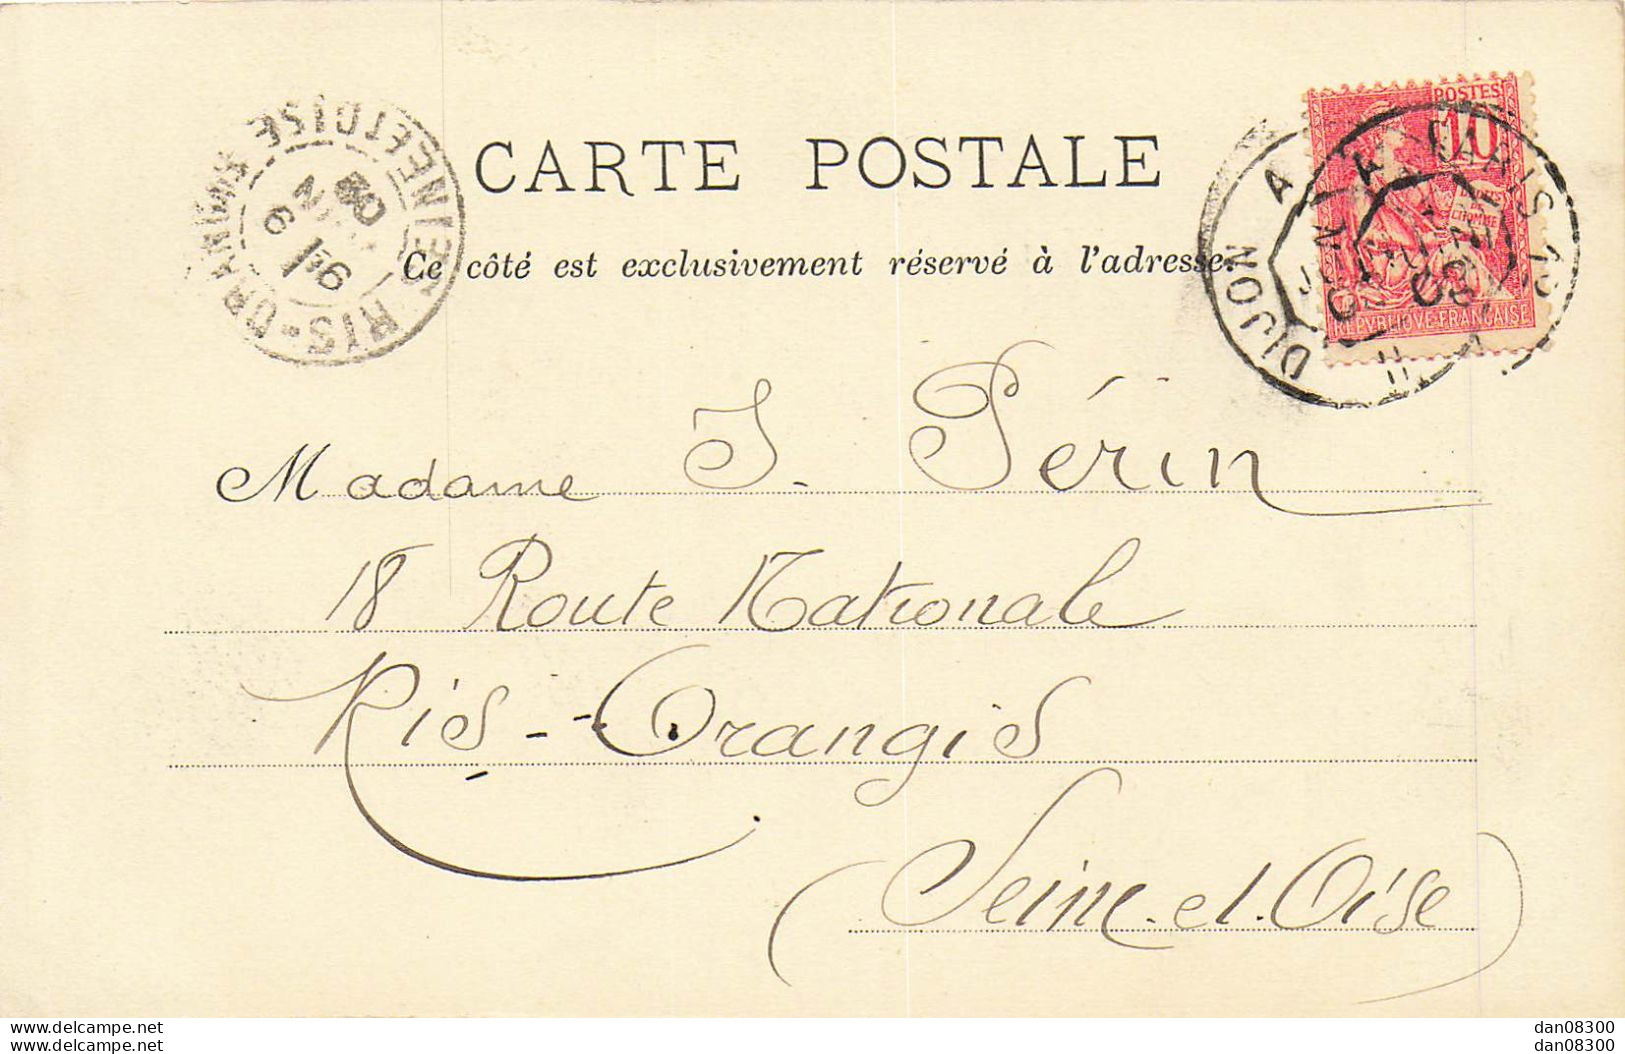 CARTE POSTALE
Ce côté est exclusivement réservé à l'adresse.
RIS-ORANGIS
SEINE ET OISE
POSTES
10
DROITES DE L'HOMME
REPVBLIQVE FRANÇAISE
DIJON A PARIS
JUIN
Madame J. Périn
18 Route Nationale
Ris-Orangis
(Seine-et-Oise)
www.delcampe.net
www.delcampe.net
dan08300
dan08300